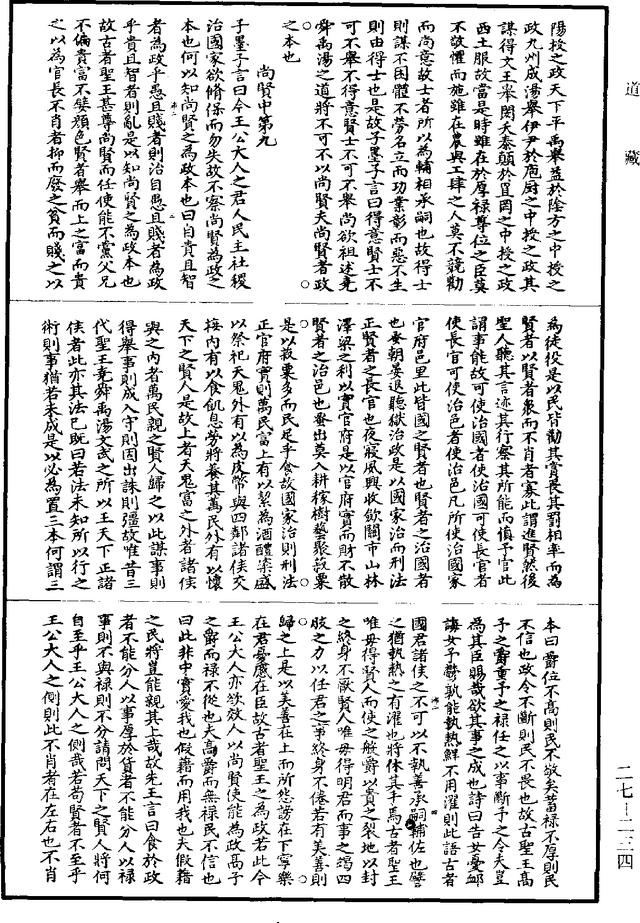 道藏
陽授之政天下平禹舉益於陰方之中授之
政九州成湯舉伊尹於庖厨之中授之政其
謀得文王舉閎夭泰顛於罝罔之中授之政
西土服故當是時雖在於厚禄尊位之臣莫
不敬懼而施雖在農與工肆之人莫不競勸
而尚意故士者所以為輔相承嗣也故得士
則謀不困體不勞名立而功業彰而惡不生
則由得士也是故子墨子言曰得意賢士不
可不舉不得意賢士不可不舉尚欲祖述堯
舜禹湯之道將不可不以尚賢夫尚賢者政
之本也
尚賢中第九
子墨子言曰今王公大人之君人民主社稷
治國家欲脩保而勿失故不察尚賢為政之
本也何以知尚賢之為政本也曰自貴且智
者為政乎愚且賤者則治自愚且賤者為政
乎貴且智者則亂是以知尚賢之為政本也
故古者聖王甚尊尚賢而任使能不黨父兄
不偏貴富不嬖顏色賢者舉而上之富而貴
之以為官長不肖者抑而廢之貧而賤之以
為徒役是以民皆勸其賞畏其罰相率而為
賢者以賢者衆而不肖者寡此謂進賢然後
聖人聽其言迹其行察其所能而慎予官此
謂事能故可使治國者使治國可使長官者
使長官可使治邑者使治邑凡所使治國家
官府邑里此皆國之賢者也賢者之治國者
也蚤朝晏退聽獄治政是以國家治而刑法
正賢者之長官也夜寝夙興收歛關市山林
澤梁之利以實官府是以官府實而財不散
賢者之治邑也蚤出莫入耕稼樹藝聚菽粟
是以菽粟多而民足乎食故國家治則刑法
正官府實則萬民富上有以絜為酒醴粢盛
以祭祀天鬼外有以為皮幣與四鄰諸侯交
接内有以食飢息勞將養其萬民外有以懷
天下之賢人是故上者天鬼富之外者諸侯
與之内者萬民親之賢人歸之以此謀事則
得舉事則成入守則固出誅則彊故唯昔三
代聖王堯舜禹湯文武之所以王天下正諸
侯者此亦其法已既曰若法未知所以行之
術則事猶若未成是以必為置三本何謂三
本曰爵位不高則民不敬矣蓄禄不厚則民
不信也政令不斷則民不畏也故古聖王高
予之爵重予之禄任之以事斷予之令夫豈
為其臣賜哉欲其事之成也詩曰告女憂卹
誨女予鬱孰能執熱鮮不用濯則此語古者
國君諸侯之不可以不執善承嗣輔佐也譬
之猶執熱之有濯也將休其手焉古者聖王
唯毋得賢人而使之般爵以貴之裂地以封
之終身不厭賢人唯毋得明君而事之竭四
肢之力以任君之事終身不倦若有美善則
歸之上是以美善在上而所怨謗在下寧樂
在君憂慼在臣故古者聖王之為政若此今
王公大人亦欲效人以尚賢使能為政高予
之爵而禄不從也夫高爵而無禄民不信也
曰此非中實愛我也假藉而用我也夫假藉
之民將豈能親其上哉故先王言曰貪於政
者不能分人以事厚於貨者不能分人以禄
事則不與禄則不分請問天下之賢人將何
自至乎王公大人之側哉若苟賢者不至乎
王公大人之側則此不肖者在左右也不肖
二七－二三四